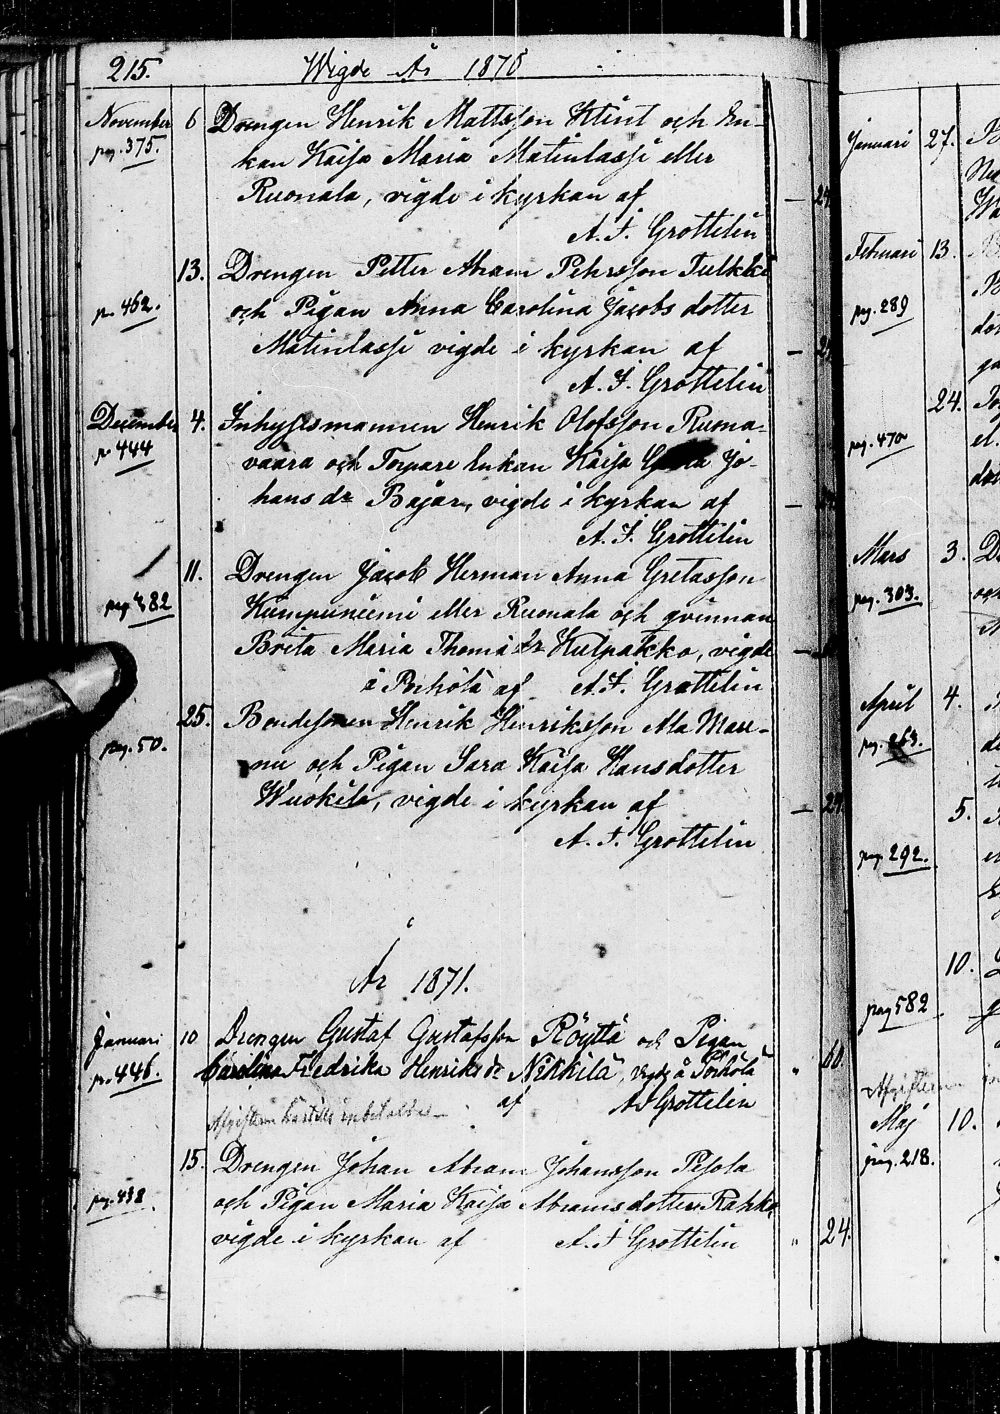 215. Wigde År 1870
November 6 Drengen Henrik Mattsson Klint och En-
pag. 375. kan Kaisa Maria Matinlassi eller
Ruonala, vigde i kyrkan af
A. F. Grottelin
13. Drengen Petter Abram Pehrsson Tulkki
p. 462. och Pigan Anna Carolina Jacobs dotter
Matinlassi vigde i kyrkan af
A. F. Grottelin
December 4. Inhysesmannen Henrik Olofsson Ruona-
p. 444 vaara och Torpare Enkan Kaisa Greta Jo-
hans dr Bajar, vigde i kyrkan af
A. F. Grottelin
11. Drengen Jacob Herman Anna Gretasson
pag. 382 Kumpuniemi eller Ruonala och qvinnan
Brita Maria Thomædr Kulpakko, vigde
i Porkola af A. F. Grottelin
25. Bondesonen Henrik Henriksson Ala Mau-
pag. 50. nu och Pigan Sara Kaisa Hansdotter
Wuokila, vigde i kyrkan af
A. F. Grottelin
År 1871.
Januari 10 Drengen Gustaf Gustafsson Röyttä och Pigan
p. 446. Carolina Fredrika Henriksdr Nikkilä, vigde å Porkola
af A F Grottelin
15. Drengen Johan Abram Johansson Pesola
pag. 438 och Pigan Maria Kaisa Abramsdotter Rahko
vigde i kyrkan af A. F Grottelin
60.
24.
Januari 27.
Februari 13.
pag. 289
24.
pag. 470
Mars 3.
pag. 303.
April 4.
5.
pag. 292.
10.
pag 582
Maj 10.
pag. 218.